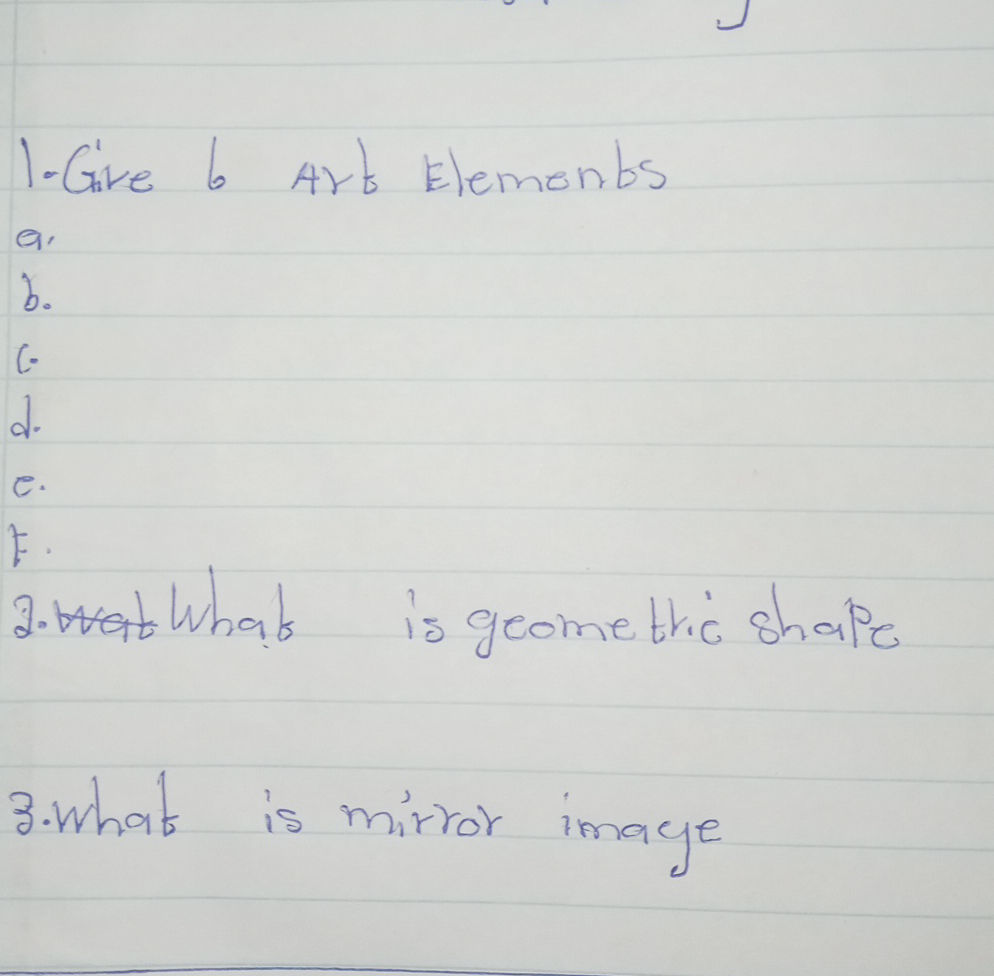 1. Give 6 Art Elements
a.
b.
c.
d.
e.
f.
2. What is geometric shape
3. what is mirror image